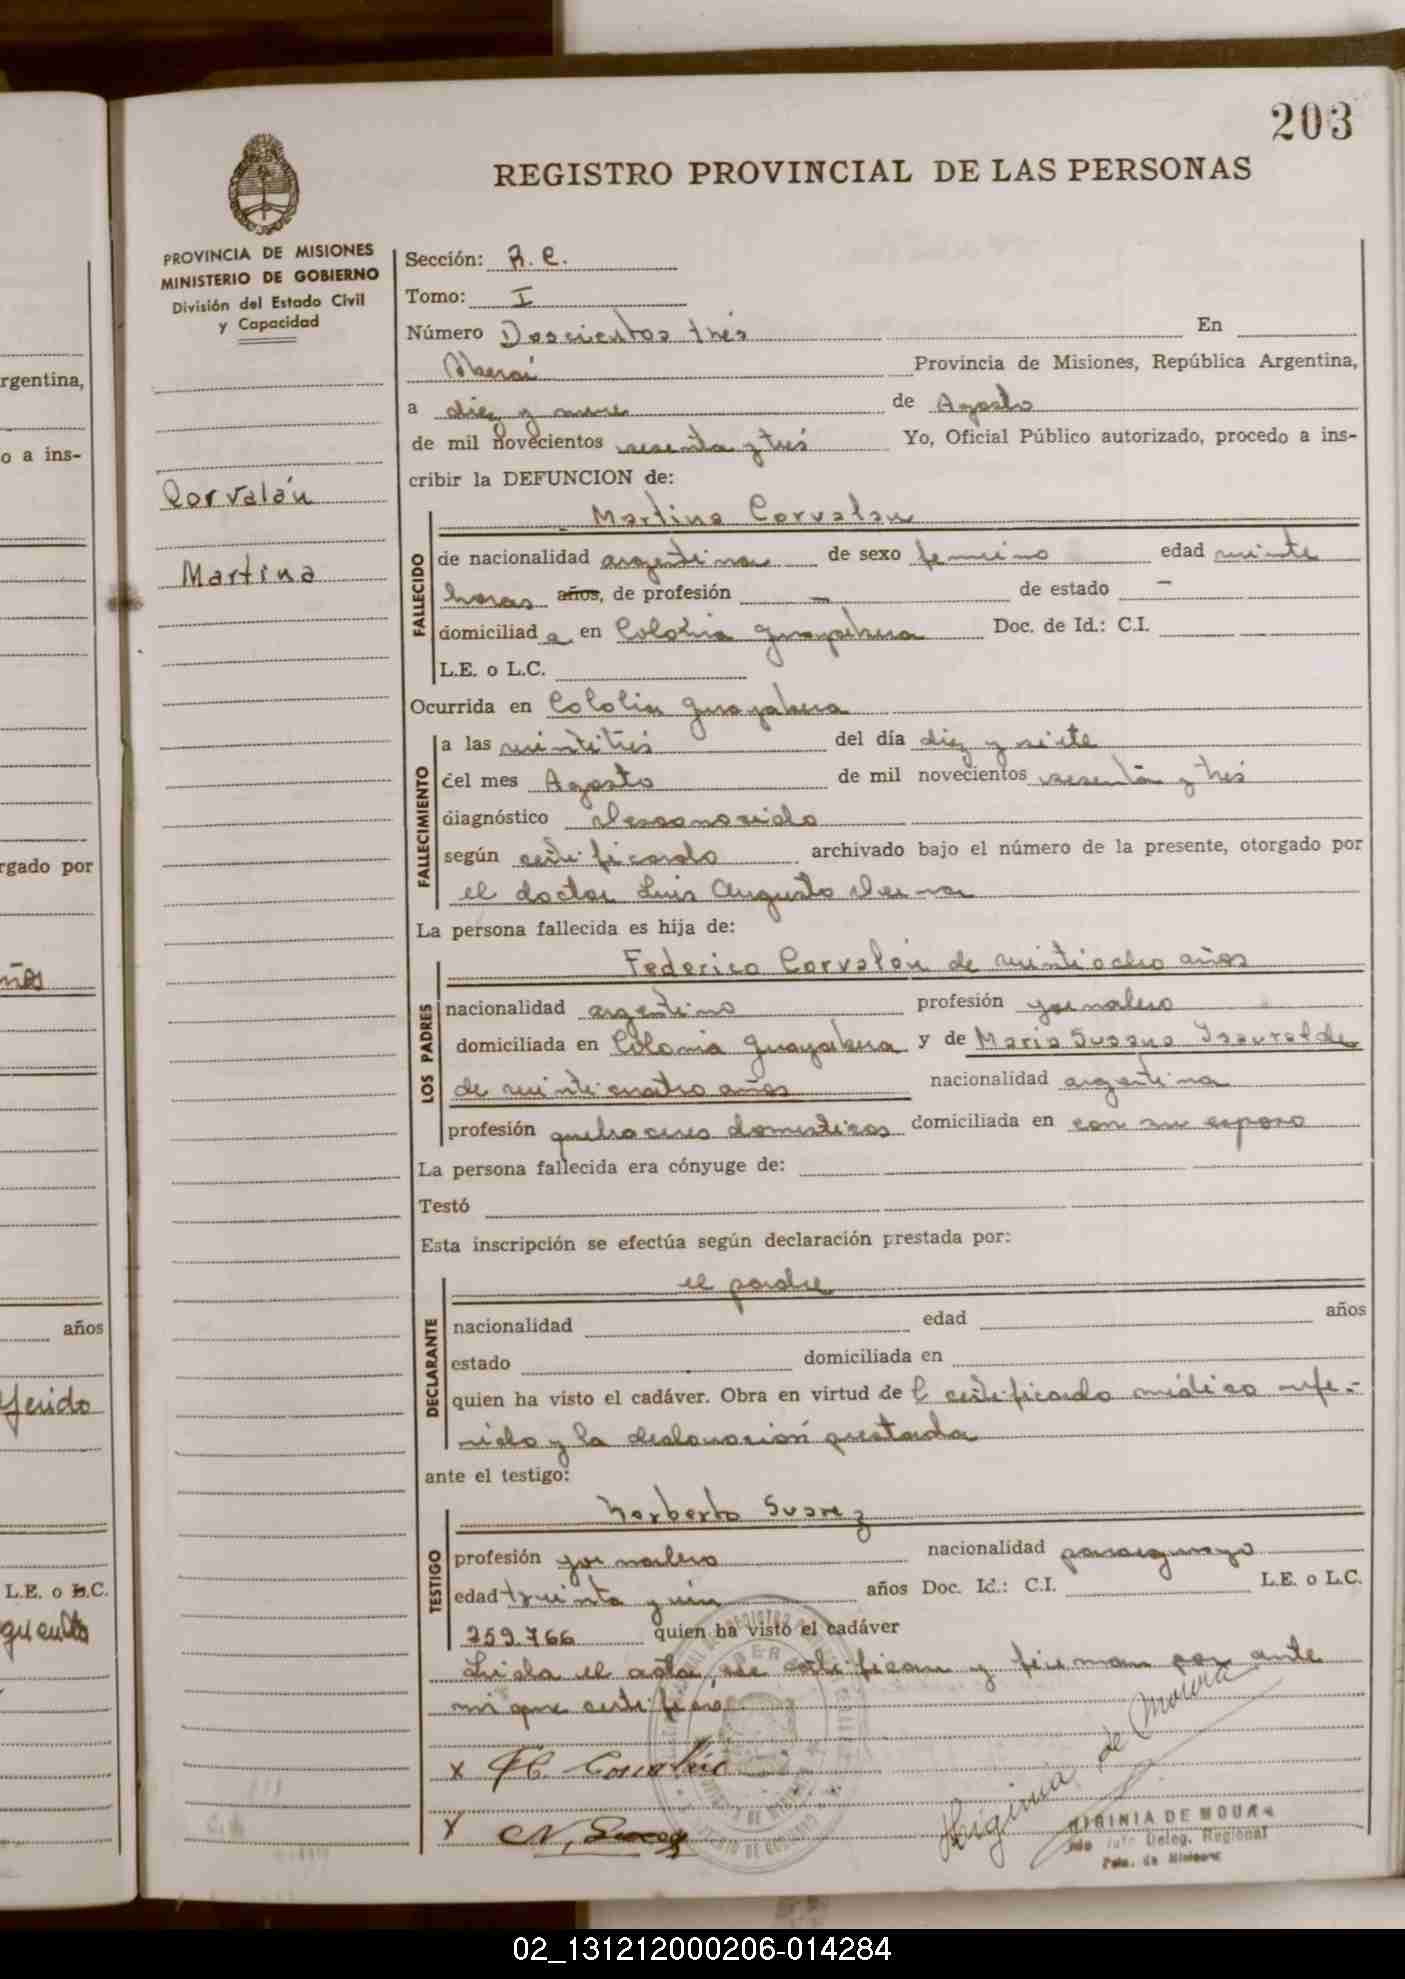 203
REGISTRO PROVINCIAL DE LAS PERSONAS
PROVINCIA DE MISIONES
MINISTERIO DE GOBIERNO
División del Estado Civil
y Capacidad
Corvalán
Martina
Sección: R. C.
Tomo: I
Número Doscientos trés En
Oberá Provincia de Misiones, República Argentina,
a diez y nueve de Agosto
de mil novecientos sesenta y trés Yo, Oficial Público autorizado, procedo a ins-
cribir la DEFUNCION de:
Martina Corvalan
FALLECIDO
de nacionalidad argentina de sexo femenino edad veinte
horas años, de profesión — de estado —
domiciliad a en Colonia Guayabera Doc. de Id.: C.I.
L.E. o L.C.
Ocurrida en Cololia Guayabera
FALLECIMIENTO
a las veintitrés del día diez y siete
del mes Agosto de mil novecientos sesenta y trés
diagnóstico desconocido
según certificado archivado bajo el número de la presente, otorgado por
el doctor Luis Augusto
La persona fallecida es hija de:
LOS PADRES
Federico Corvalán de veintiocho años
nacionalidad argentino profesión jornalero
domiciliada en Colonia Guayabera y de Maria Susana Isauralde
de veinticuatro años nacionalidad argentina
profesión quehaceres domesticos domiciliada en con su esposo
La persona fallecida era cónyuge de:
Testó
Esta inscripción se efectúa según declaración prestada por:
DECLARANTE
el padre
nacionalidad edad años
estado domiciliada en
quien ha visto el cadáver. Obra en virtud de l certificado médico refe-
rido y la declaración prestada
ante el testigo:
TESTIGO
Norberto Suarez
profesión jornalero nacionalidad paraguayo
edad treinta y un años Doc. Id.: C.I. L.E. o L.C.
759.766 quien ha visto el cadáver
Leida el acta, se ratifican y firman por ante
mi que certifico
x
x N. Suarez
Higinia de Moura
HIGINIA DE MOURA
Deleg. Regional
Pcia. de Misiones
rgentina,
o a ins-
rgado por
años
años
L.E. o L.C.
02_131212000206-014284